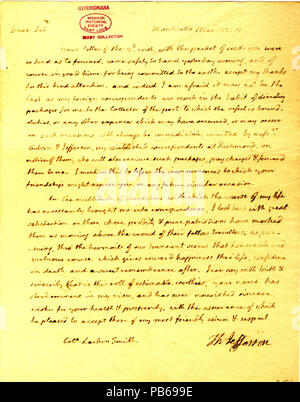 JEFFERSONIANA
MISSOURI
HISTORICAL
SOCIETY
SAINT LOUIS
BIXBY COLLECTION
Dear Sir Monticello
Your letter of the inst. with the packet of seeds you were
so kind as to forward, came safely to hand yesterday evening, and of
course in good time for being committed to the earth. accept my thanks
for this kind attention. and indeed I am afraid it may not be the
last. as my foreign correspondents are much in the habit of directing
packages for me to the Collector of the port to which the vessel is bound,
duties, or any other expence which may have occurred, or may occur
on such occasions will always be immediately remitted by mess.
Gibson & Jefferson, my established correspondents at Richmond, on
notice of them, who will also recieve such packages, pay charges & forward
them to me. I mention this to lessen the inconveniences to which your
friendship might expose you on any future similar occasion.
In the multitude of characters with which the course of my life
has necessarily brought me into correspondence, I look back with great
satisfaction on those whose probity & pure patriotism have marked
them as moving above the crowd of their fellow travellers, as
thro' the of our transient scene that honorable and
virtuous course which gives inward happiness thro' life, confidence
in death and a sweet remembrance after. I can say with truth &
sincerity that in the roll of estimable worthies, your name has
stood eminent in my view, and has ever nourished sincere
wishes for your health & prosperity, with the assurance of which
be pleased to accept those of my most friendly esteem & respect
Th: Jefferson
Colo. Larkin Smith.
alamy
PB699E